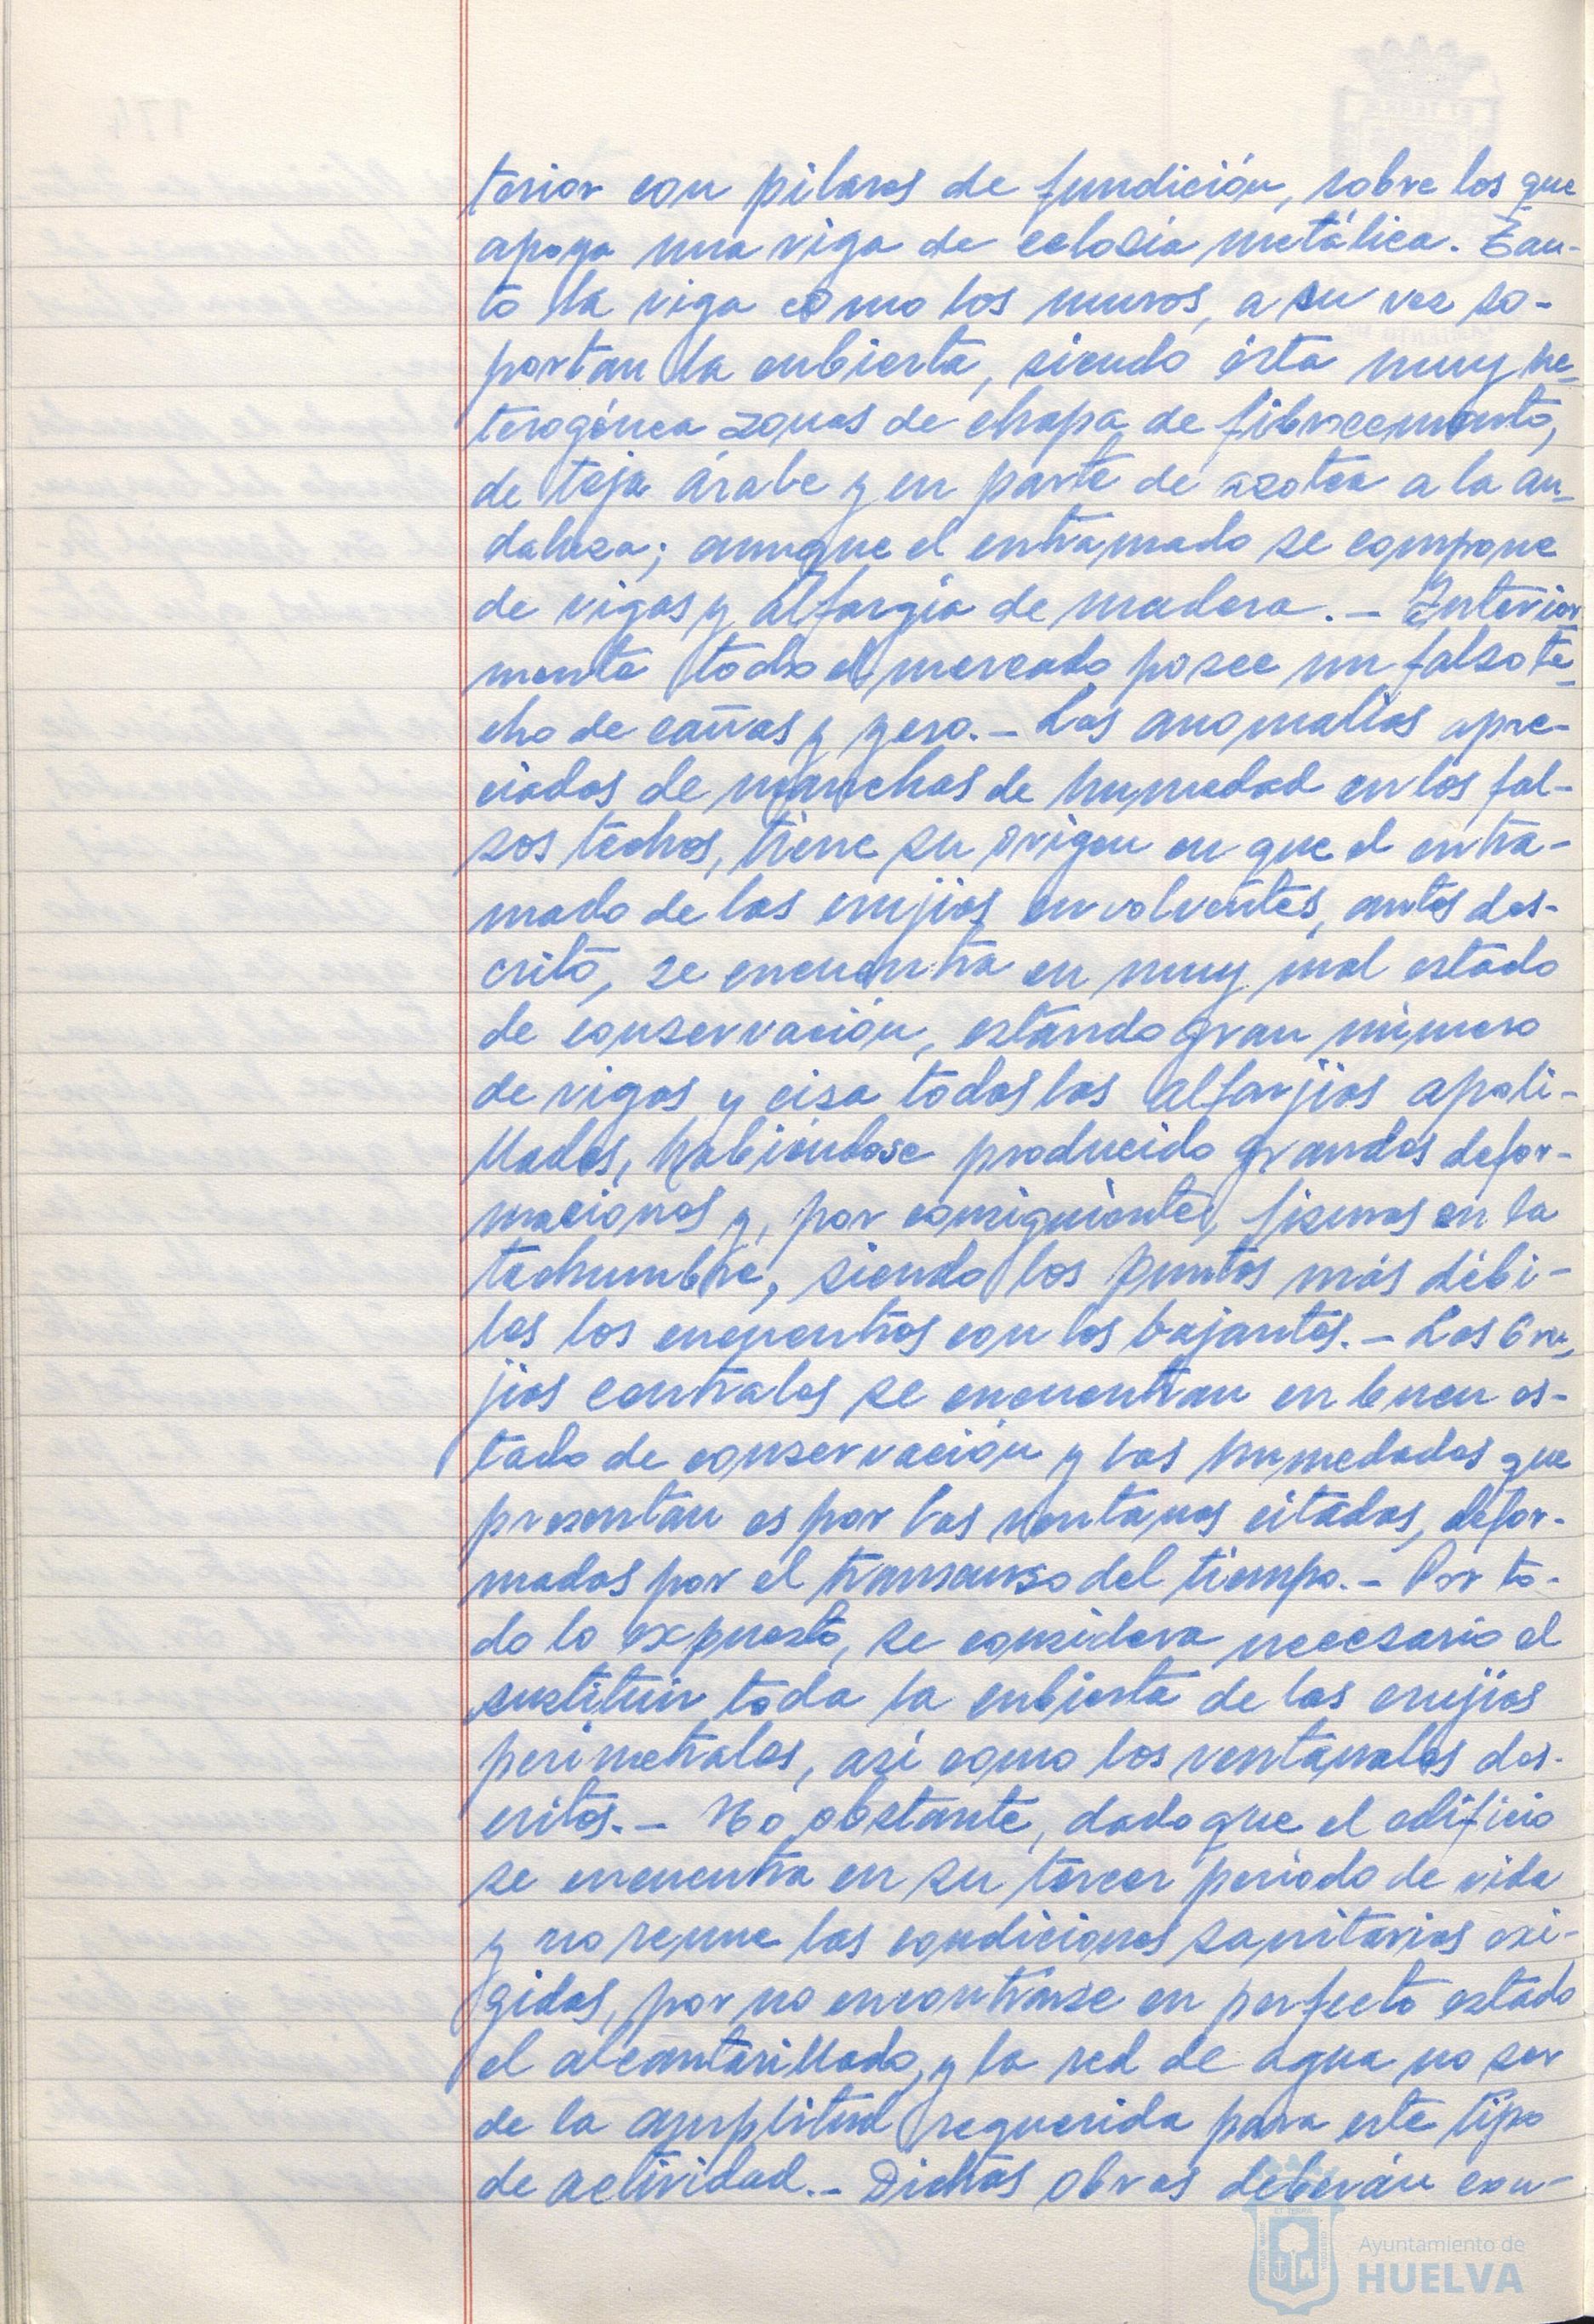 terior con pilares de fundición, sobre los que
apoya una viga de celosía metálica. Tan-
to la viga como los muros, a su vez so-
portan la cubierta, siendo ésta muy he-
terogénea zonas de chapa de fibrocemento,
de teja árabe y en parte de azotea a la an-
daluza; aunque el entramado se compone
de vigas y alfargía de madera.- Interior
mente todo el mercado posee un falso te-
cho de cañas y yeso.- Las anomalías apre-
ciadas de manchas de humedad en los fal-
sos techos, tiene su origen en que el entra-
mado de las crujias envolventes, antes des-
crito, se encuentra en muy mal estado
de conservación, estando gran número
de vigas y cisa todas las alfarjias apoli-
lladas, habiéndose producido grandes defor-
maciones y, por consiguientes, fisuras en la
techumbre, siendo los puntos más débi-
les los encuentros con los bajantes.- Las Cru-
jias centrales se encuentran en buen es-
tado de conservación y las humedades que
presentan es por las ventanas citadas, defor-
madas por el transcurso del tiempo.- Por to-
do lo expuesto, se considera necesario el
sustituir toda la cubierta de las crujias
perimetrales, así como los ventanales des-
critos.- No obstante, dado que el edificio
se encuentra en su tercer período de vida
y no reune las condiciones sanitarias exi-
gidas, por no encontrarse en perfecto estado
el alcantarillado, y la red de agua no ser
de la amplitud requerida para este tipo
de actividad.- Dichas obras deberán con-
Ayuntamiento de
HUELVA